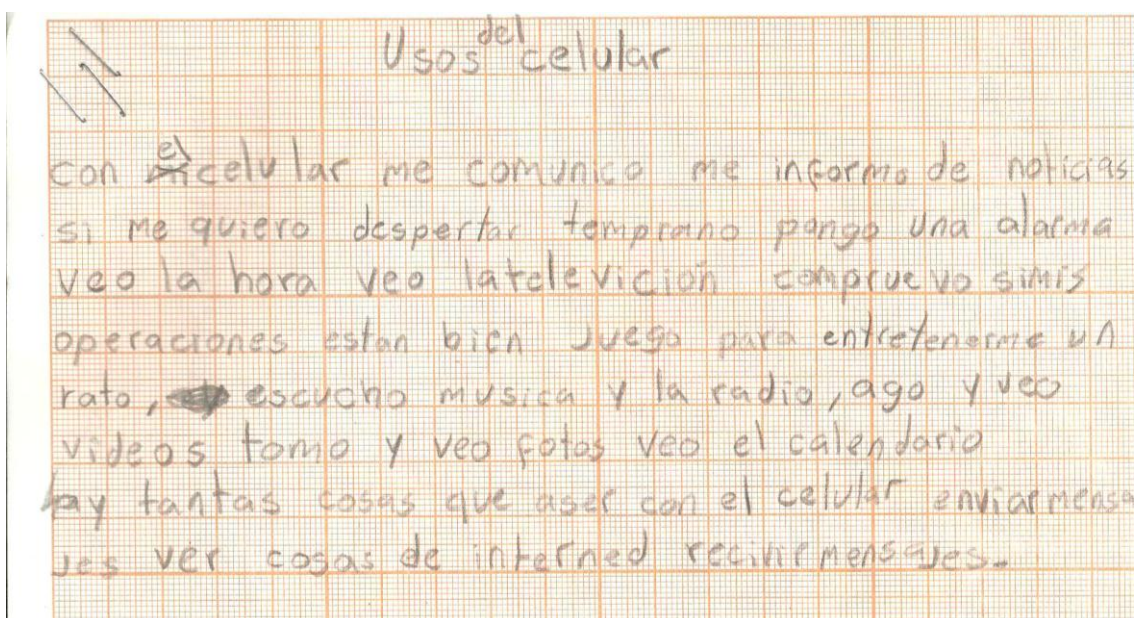 Usos del celular
con el celular me comunico me informo de noticias
si me quiero despertar temprano pongo una alarma
veo la hora veo latelevición compruevo simis
operaciones estan bien Juego para entretenerme un
rato, escucho musica y la radio, ago y veo
videos tomo y veo fotos veo el calendario
hay tantas cosas que aser con el celular enviar mensa
Jes ver cosas de interned recivir mensaJes.